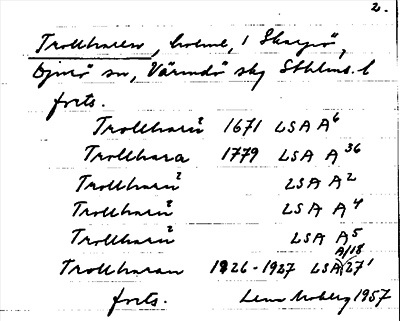 2.
Trollharen, holme, i Skarpö,
Djurö sn, Värmdö skg Sthlms. l
forts.
Trollharu 1671 LSA A6
Trollhara 1779 LSA A36
Trollharu LSA A2
Trollharu LSA A4
Trollharu LSA A5
A/18
Trollharan 1926-1927 LSA 27'
forts. Lenn Moberg 1957